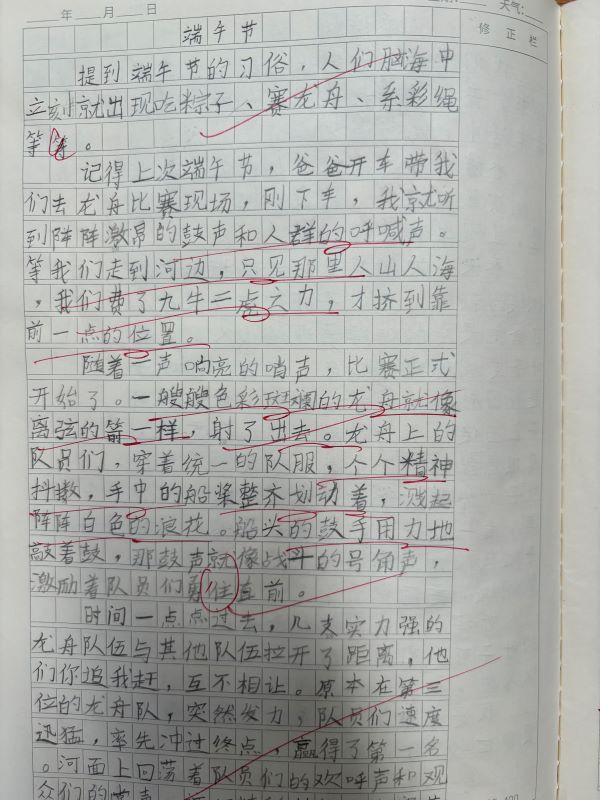 年 月 日 天气:
修正栏
端午节
提到端午节的习俗，人们脑海中
立刻就出现吃粽子、赛龙舟、系彩绳
等等。
记得上次端午节，爸爸开车带我
们去龙舟比赛现场，刚下车，我就听
到阵阵激昂的鼓声和人群的呼喊声。
等我们走到河边，只见那里人山人海
，我们费了九牛二虎之力，才挤到靠
前一点的位置。
随着一声响亮的哨声，比赛正式
开始了。一艘艘色彩斑斓的龙舟就像
离弦的箭一样，射了出去。龙舟上的
队员们，穿着统一的队服，个个精神
抖擞，手中的船桨整齐划动着，溅起
阵阵白色的浪花。船头的鼓手用力地
敲着鼓，那鼓声就像战斗的号角声，
激励着队员们勇住直前。
时间一点点过去，几支实力强的
龙舟队伍与其他队伍拉开了距离，他
们你追我赶，互不相让。原本在第三
位的龙舟队，突然发力，队员们速度
迅猛，率先冲过终点，赢得了第一名
。河面上回荡着队员们的欢呼声和观
众们的掌声